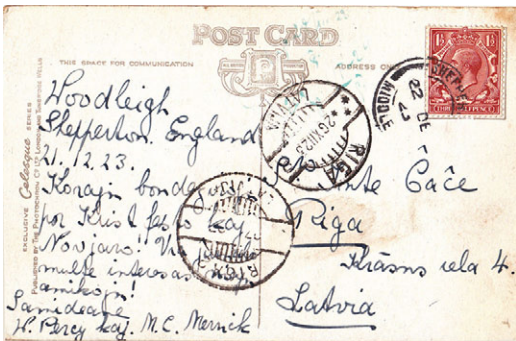 POST CARD
THIS SPACE FOR COMMUNICATION
ADDRESS ONLY
EXCLUSIVE Celesque SERIES
PUBLISHED BY THE PHOTOCHROM CO LTD LONDON AND TUNBRIDGE WELLS
Woodleigh
Shepperton. England
21.12.23.
Korajn bonde
por Kristfesto kaj
Novjaro! Vi
multe interesas
amikojn!
Samideane
W. Percy kaj. M.C. Merrick
Čače
Riga
Krāsns iela 4.
Latvia
SHEPPERTON
MIDDLE
22 DE
LATVIJA
26 XII 23
RIGA
RIGA
1½
1½